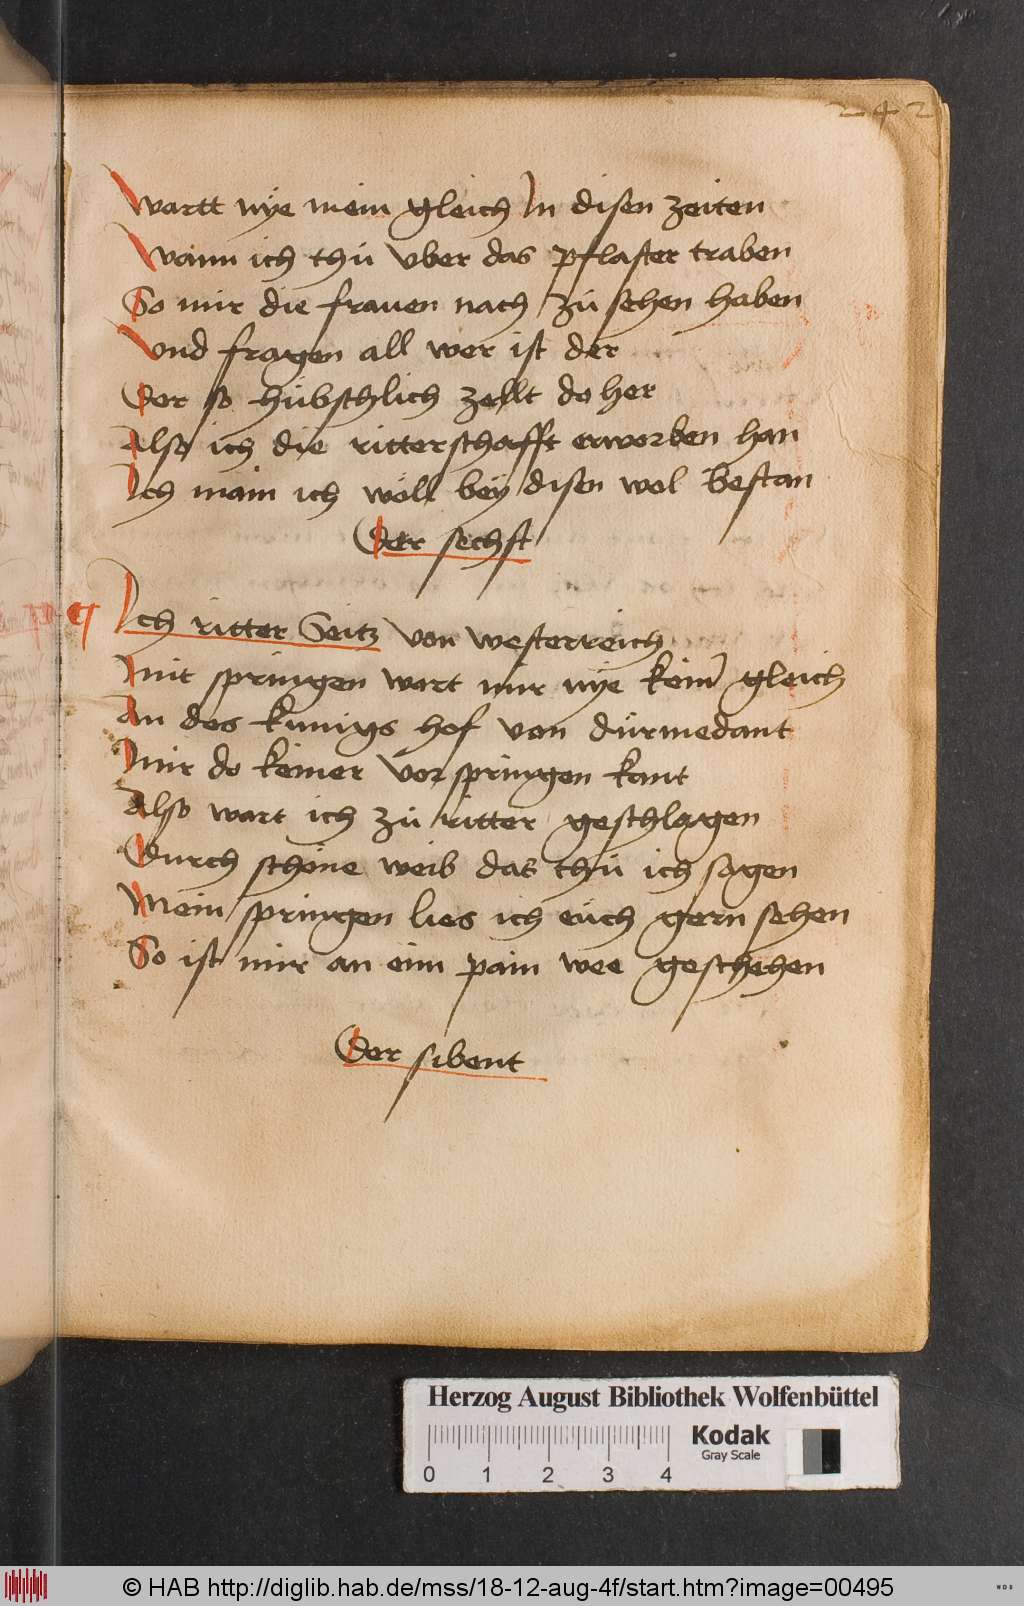 242
Wartt nye mein gleich In disen zeiten
Wann ich thů vber das pflaster traben
So mir die frauen nach zů sehen haben
Vnd fragen all wer ist der
Der so hübschlich zellt do her
Also ich die ritterschafft erworben han
Ich main ich wöll bey disen wol bestan
Der sechst
Ich ritter Seitz von westerreich
Mit springen wart mir nye keim gleich
An des kunigs hof von dürmedant
Mir do keiner vor springen kant
Also wart ich zů ritter geschlagen
Durch schöne weib das thů ich sagen
Mein springen lies ich eüch gern sehen
So ist mir an eim pain wee geschehen
Der sibent
Herzog August Bibliothek Wolfenbüttel
Kodak
Gray Scale
0 1 2 3 4
© HAB http://diglib.hab.de/mss/18-12-aug-4f/start.htm?image=00495